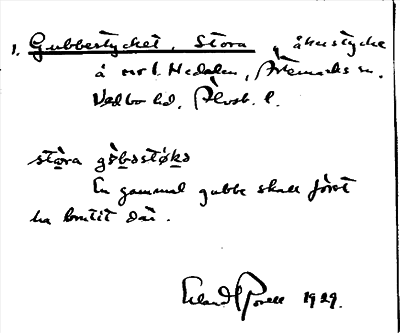 1. Gubbestycket, Stora, åkerstycke
å nr 1 Hedalen, Ärtemarks sn.
Vedbo hd, Älvsb. l.
stòra gòbəstøkə
En gammal gubbe skall först
ha brutit där.
Erland 1929.